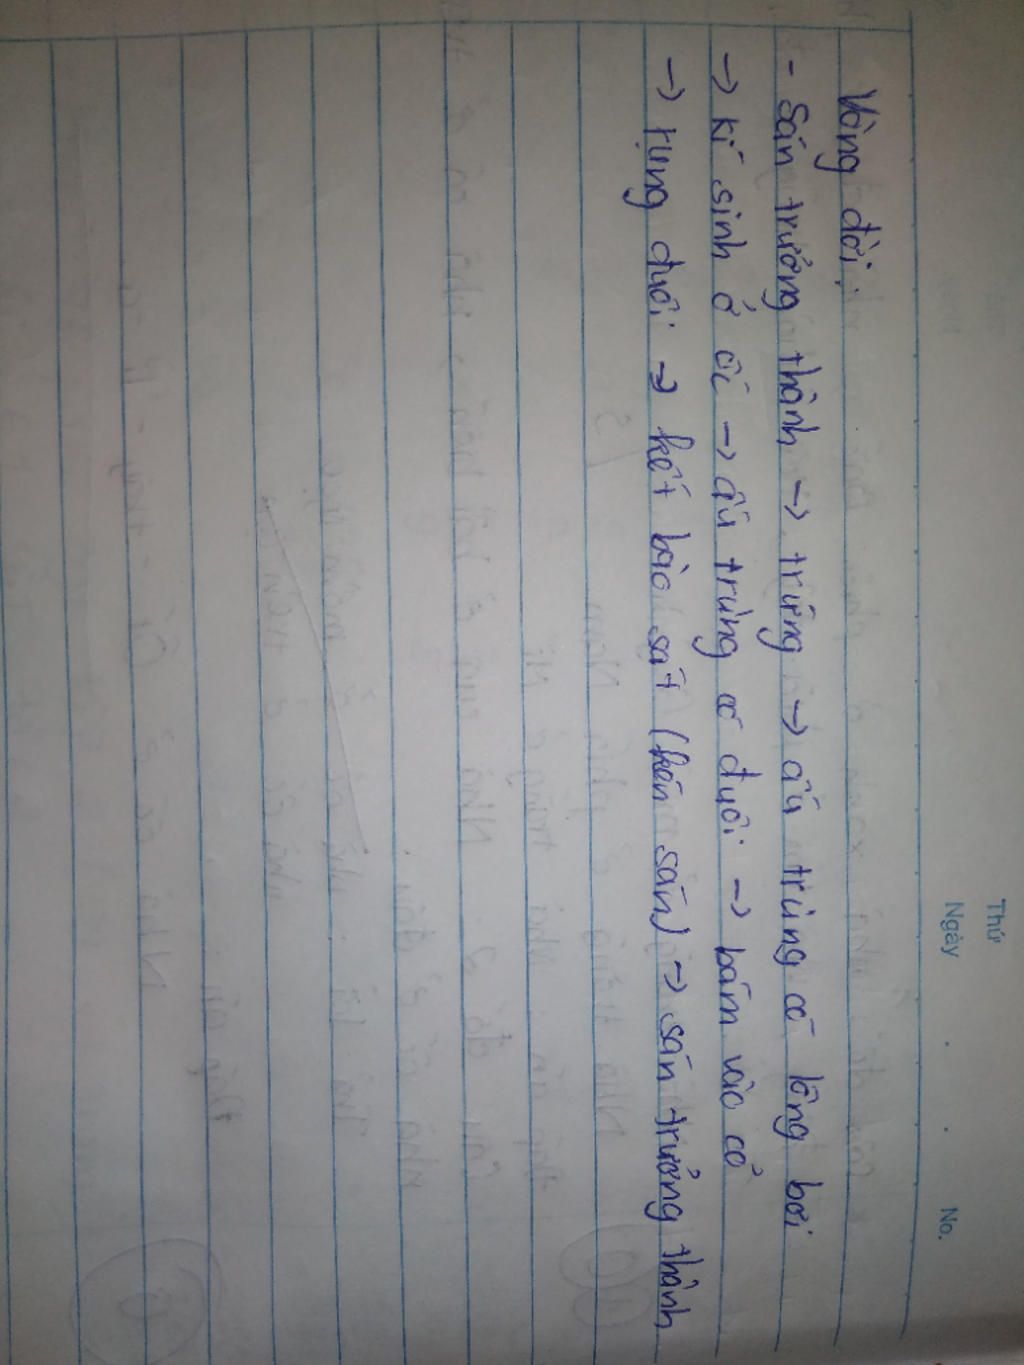 Thứ
Ngày . . No.
Vòng đời:
- Sán trưởng thành → trứng → ấu trùng có lông bơi
→ kí sinh ở ốc → ấu trùng có đuôi → bám vào cỏ
→ rụng đuôi → kết bào sát (kén sán) → sán trưởng thành